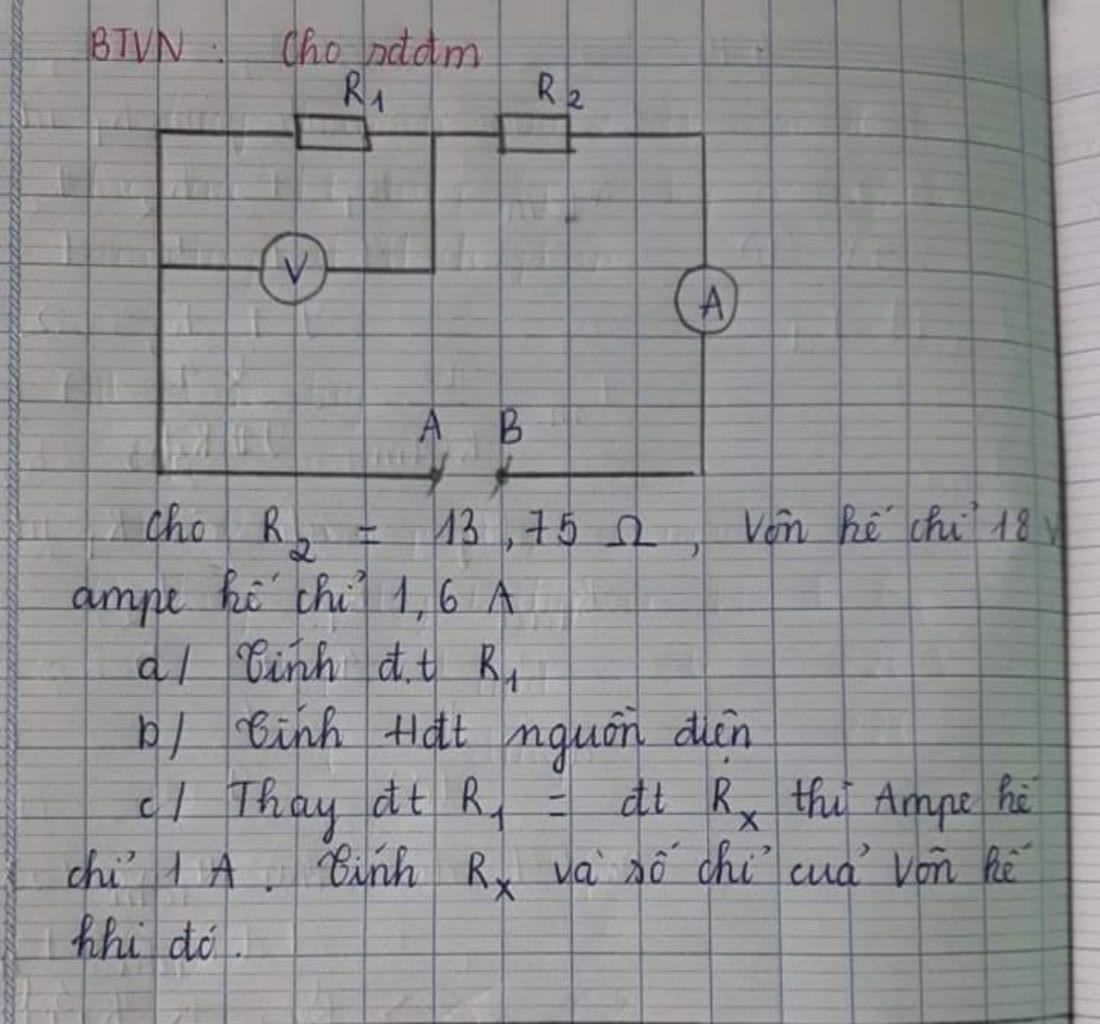 BTVN : Cho sđđm
R1 R2
V
A
A B
Cho R2 = 13,75 Ω, Vôn kế chỉ 18 V
ampe kế chỉ 1,6 A
a/ Tính đ.t R1
b/ Tính Hđt nguồn điện
c/ Thay đt R1 = đt Rx thì Ampe kế
chỉ 1 A. Tính Rx và số chỉ của Vôn kế
khi đó.